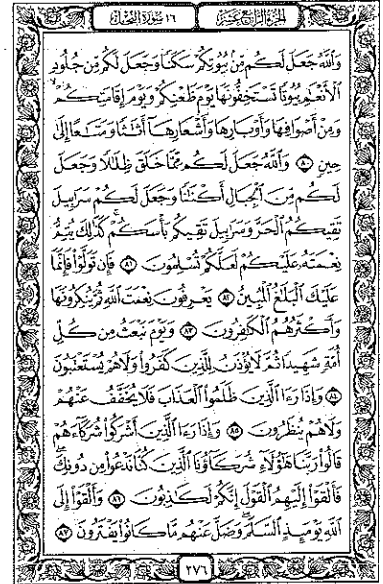 الجزء الرابع عشر
١٦ سورة النحل
وَٱللَّهُ جَعَلَ لَكُم مِّنۢ بُيُوتِكُمْ سَكَنًا وَجَعَلَ لَكُم مِّن جُلُودِ
ٱلْأَنْعَٰمِ بُيُوتًا تَسْتَخِفُّونَهَا يَوْمَ ظَعْنِكُمْ وَيَوْمَ إِقَامَتِكُمْ
وَمِنْ أَصْوَافِهَا وَأَوْبَارِهَا وَأَشْعَارِهَآ أَثَٰثًا وَمَتَٰعًا إِلَىٰ
حِينٍ ٨٠ وَٱللَّهُ جَعَلَ لَكُم مِّمَّا خَلَقَ ظِلَٰلًا وَجَعَلَ
لَكُم مِّنَ ٱلْجِبَالِ أَكْنَٰنًا وَجَعَلَ لَكُمْ سَرَٰبِيلَ
تَقِيكُمُ ٱلْحَرَّ وَسَرَٰبِيلَ تَقِيكُم بَأْسَكُمْ كَذَٰلِكَ يُتِمُّ
نِعْمَتَهُۥ عَلَيْكُمْ لَعَلَّكُمْ تُسْلِمُونَ ٨١ فَإِن تَوَلَّوْا۟ فَإِنَّمَا
عَلَيْكَ ٱلْبَلَٰغُ ٱلْمُبِينُ ٨٢ يَعْرِفُونَ نِعْمَتَ ٱللَّهِ ثُمَّ يُنكِرُونَهَا
وَأَكْثَرُهُمُ ٱلْكَٰفِرُونَ ٨٣ وَيَوْمَ نَبْعَثُ مِن كُلِّ
أُمَّةٍ شَهِيدًا ثُمَّ لَا يُؤْذَنُ لِلَّذِينَ كَفَرُوا۟ وَلَا هُمْ يُسْتَعْتَبُونَ
٨٤ وَإِذَا رَءَا ٱلَّذِينَ ظَلَمُوا۟ ٱلْعَذَابَ فَلَا يُخَفَّفُ عَنْهُمْ
وَلَا هُمْ يُنظَرُونَ ٨٥ وَإِذَا رَءَا ٱلَّذِينَ أَشْرَكُوا۟ شُرَكَآءَهُمْ
قَالُوا۟ رَبَّنَا هَٰٓؤُلَآءِ شُرَكَآؤُنَا ٱلَّذِينَ كُنَّا نَدْعُوا۟ مِن دُونِكَ
فَأَلْقَوْا۟ إِلَيْهِمُ ٱلْقَوْلَ إِنَّكُمْ لَكَٰذِبُونَ ٨٦ وَأَلْقَوْا۟ إِلَى
ٱللَّهِ يَوْمَئِذٍ ٱلسَّلَمَ وَضَلَّ عَنْهُم مَّا كَانُوا۟ يَفْتَرُونَ ٨٧
٢٧٦